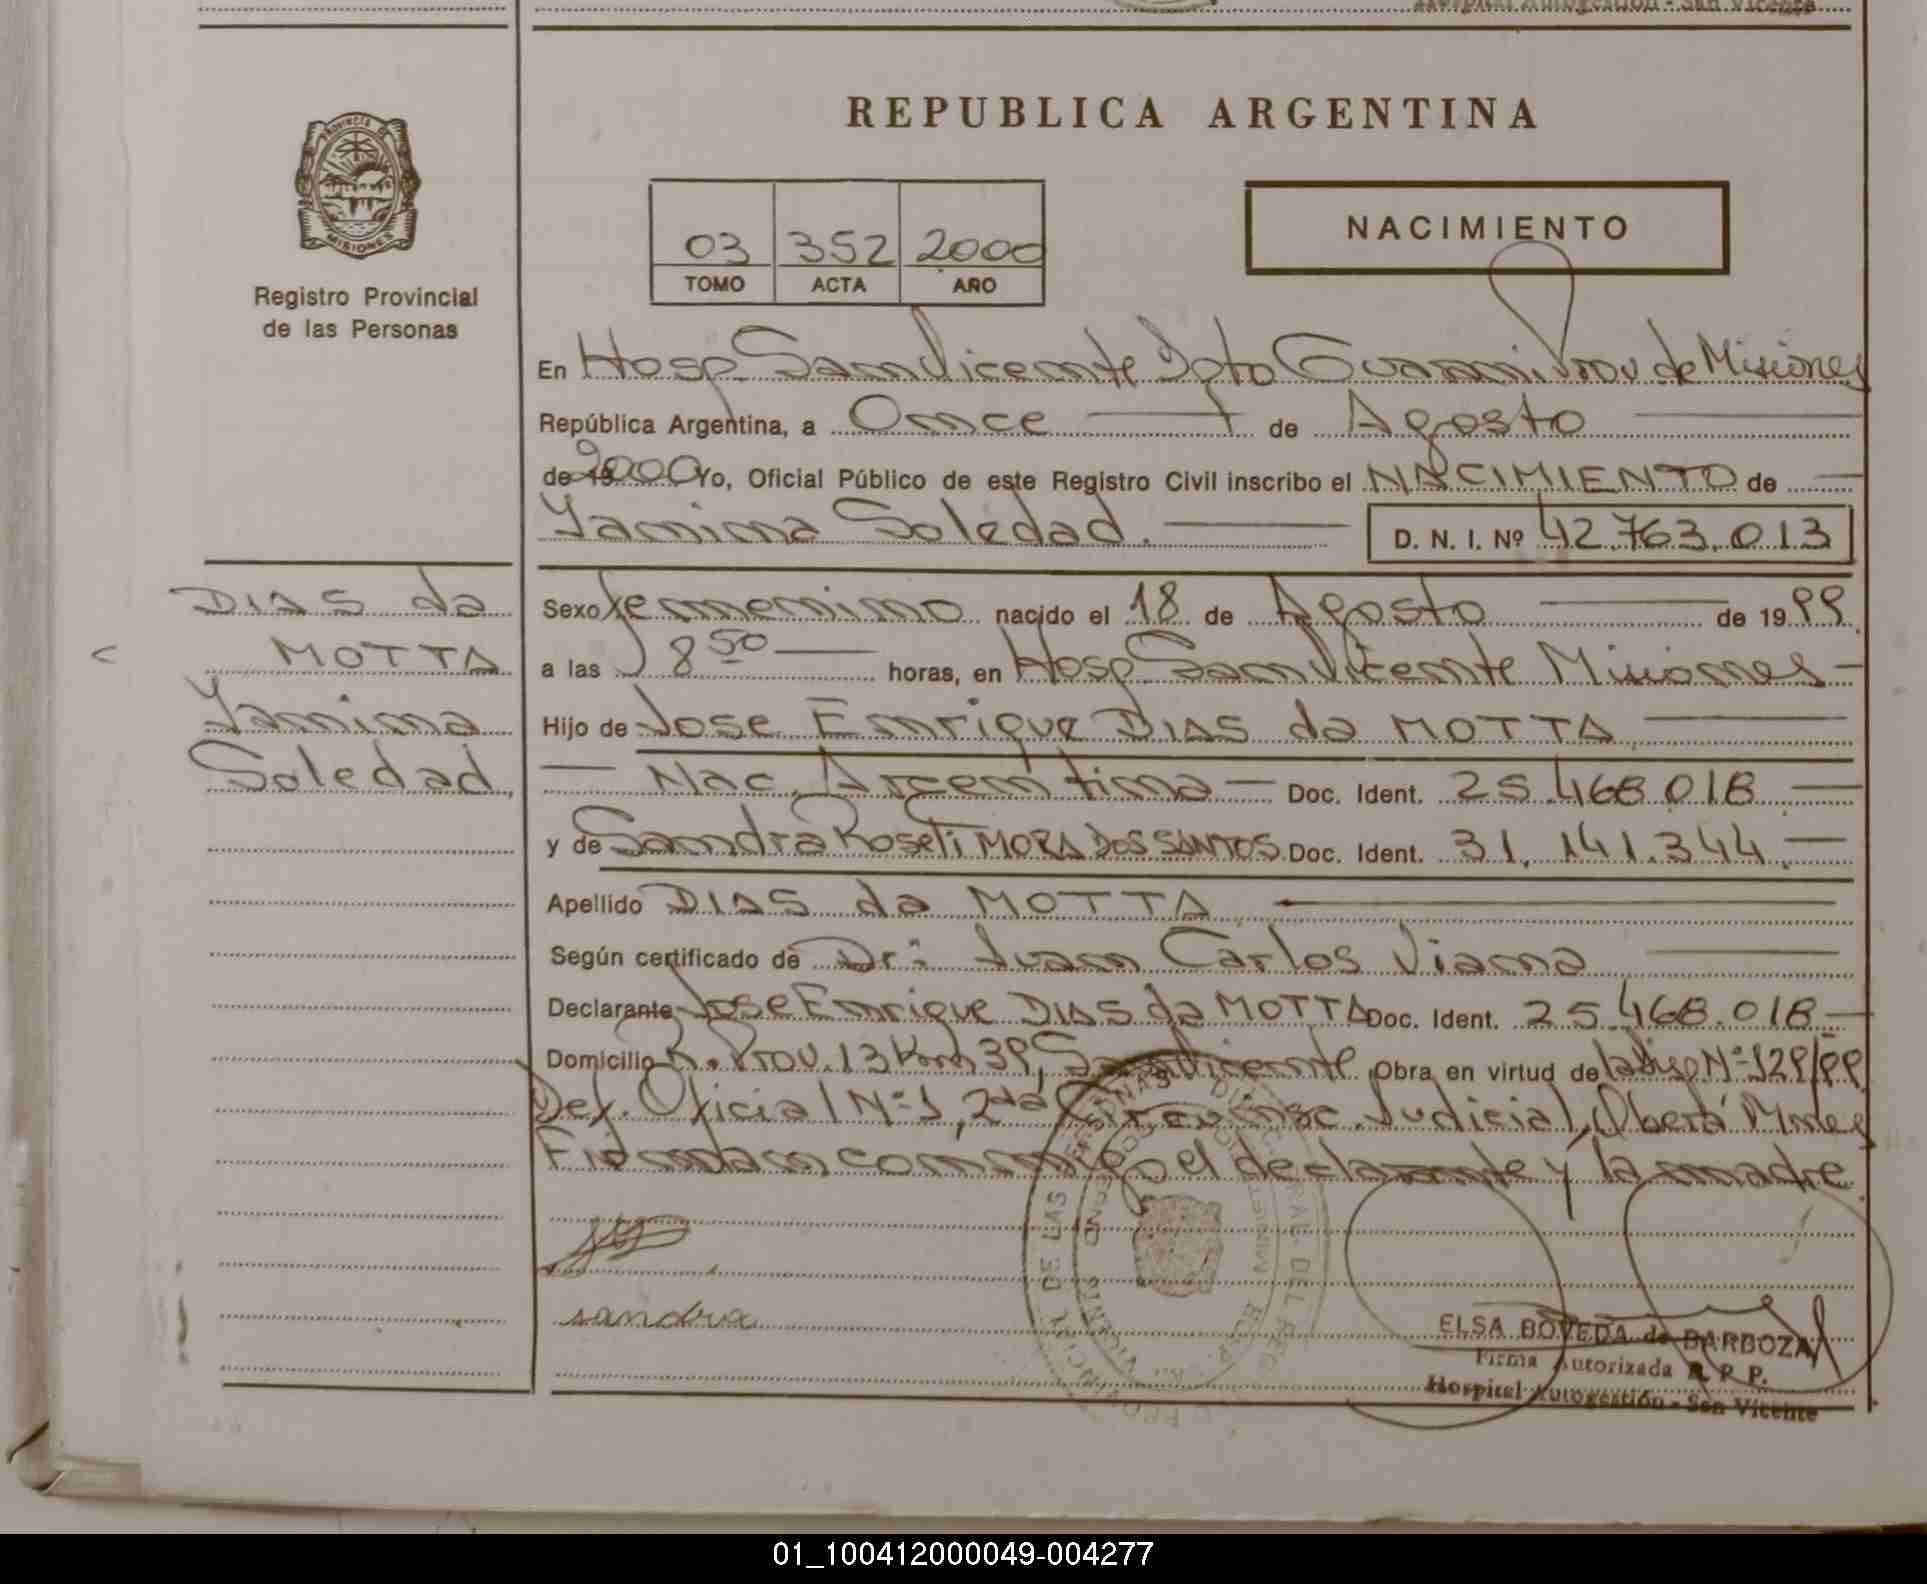 Hospital Autogestión - San Vicente
REPUBLICA ARGENTINA
PROVINCIA DE
MISIONES
Registro Provincial
de las Personas
03 352 2000
TOMO ACTA AÑO
NACIMIENTO
En Hosp San Vicente Dpto Guarani Prov de Misiones
República Argentina, a Once de Agosto
de 19 2000 Yo, Oficial Público de este Registro Civil inscribo el NACIMIENTO de
Yanina Soledad. D. N. I. Nº 42.763.013
DIAS da
MOTTA
Yanina
Soledad.
Sexo femenino nacido el 18 de Agosto de 1999.
a las 18 50 horas, en Hosp San Vicente Misiones
Hijo de Jose Enrique DIAS da MOTTA
Nac. Argentina Doc. Ident. 25.468.018
y de Sandra Roseti MORA DOS SANTOS. Doc. Ident. 31.141.344.
Apellido DIAS da MOTTA
Según certificado de Dr: Juan Carlos Viana
Declarante Jose Enrique DIAS da MOTTA Doc. Ident. 25.468.018
Domicilio R. Prov. 13 Km 39, San Vicente. Obra en virtud de la Disp Nº 129/99.
Def. Oficial Nº 1, 2da Circunsc. Judicial, Oberá Mnes
Firman conmigo el declarante y la madre.
sandra
ELSA BOVEDA de BARBOZA
Firma Autorizada R. P. P.
Hospital Autogestión - San Vicente
01_100412000049-004277